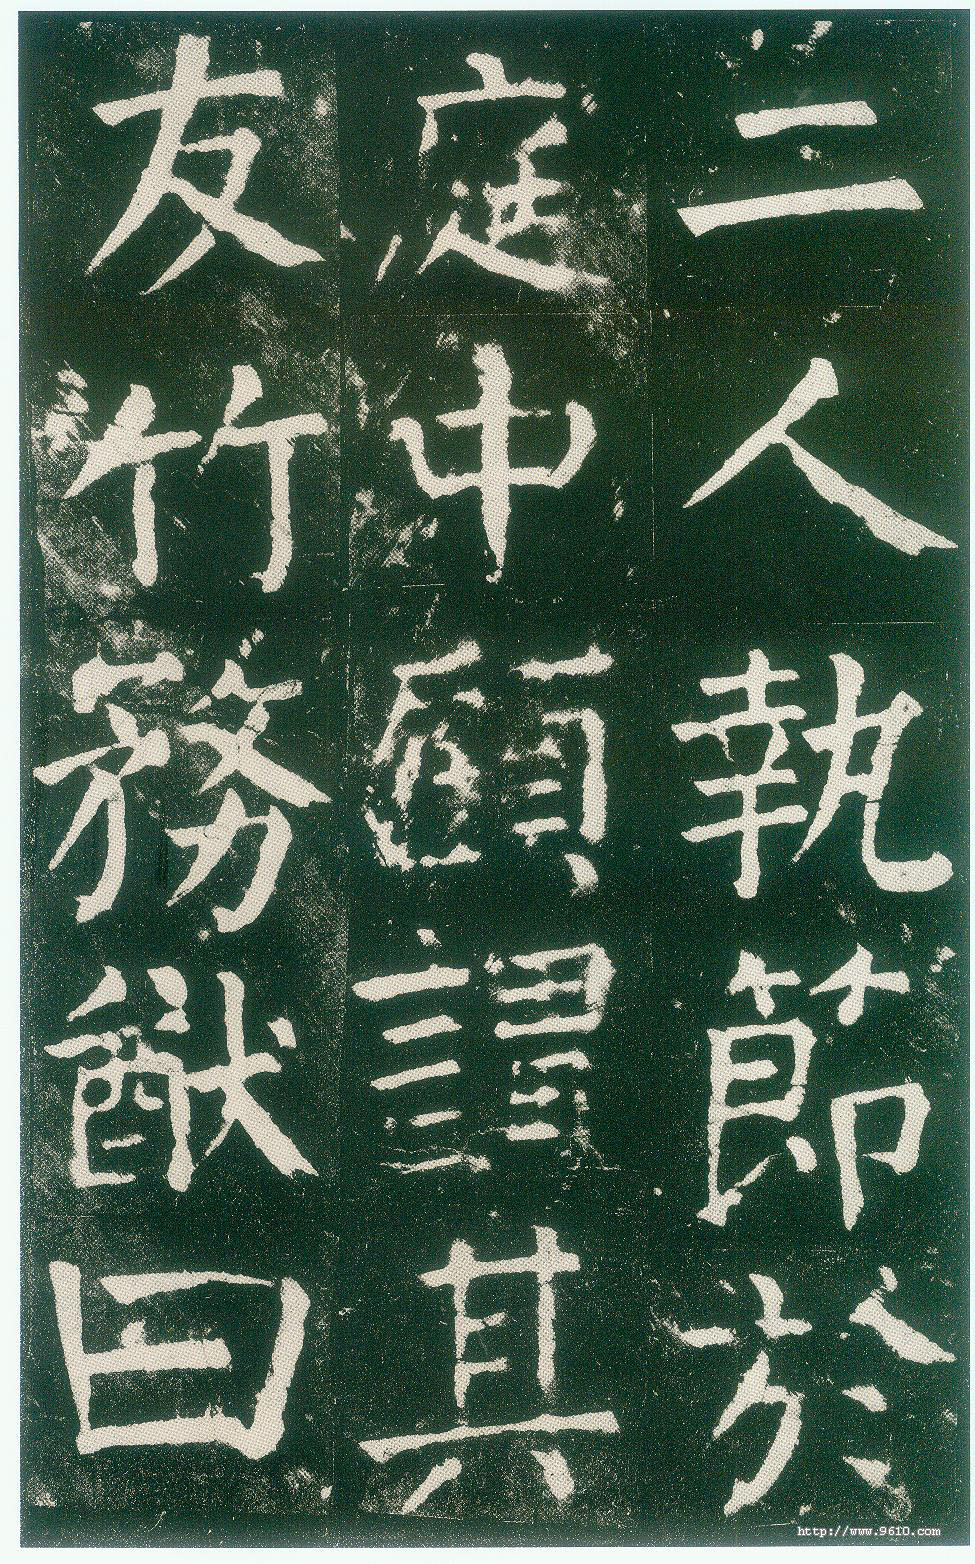 二人執節於
庭中顧謂其
友竹務猷曰
http://www.9610.com